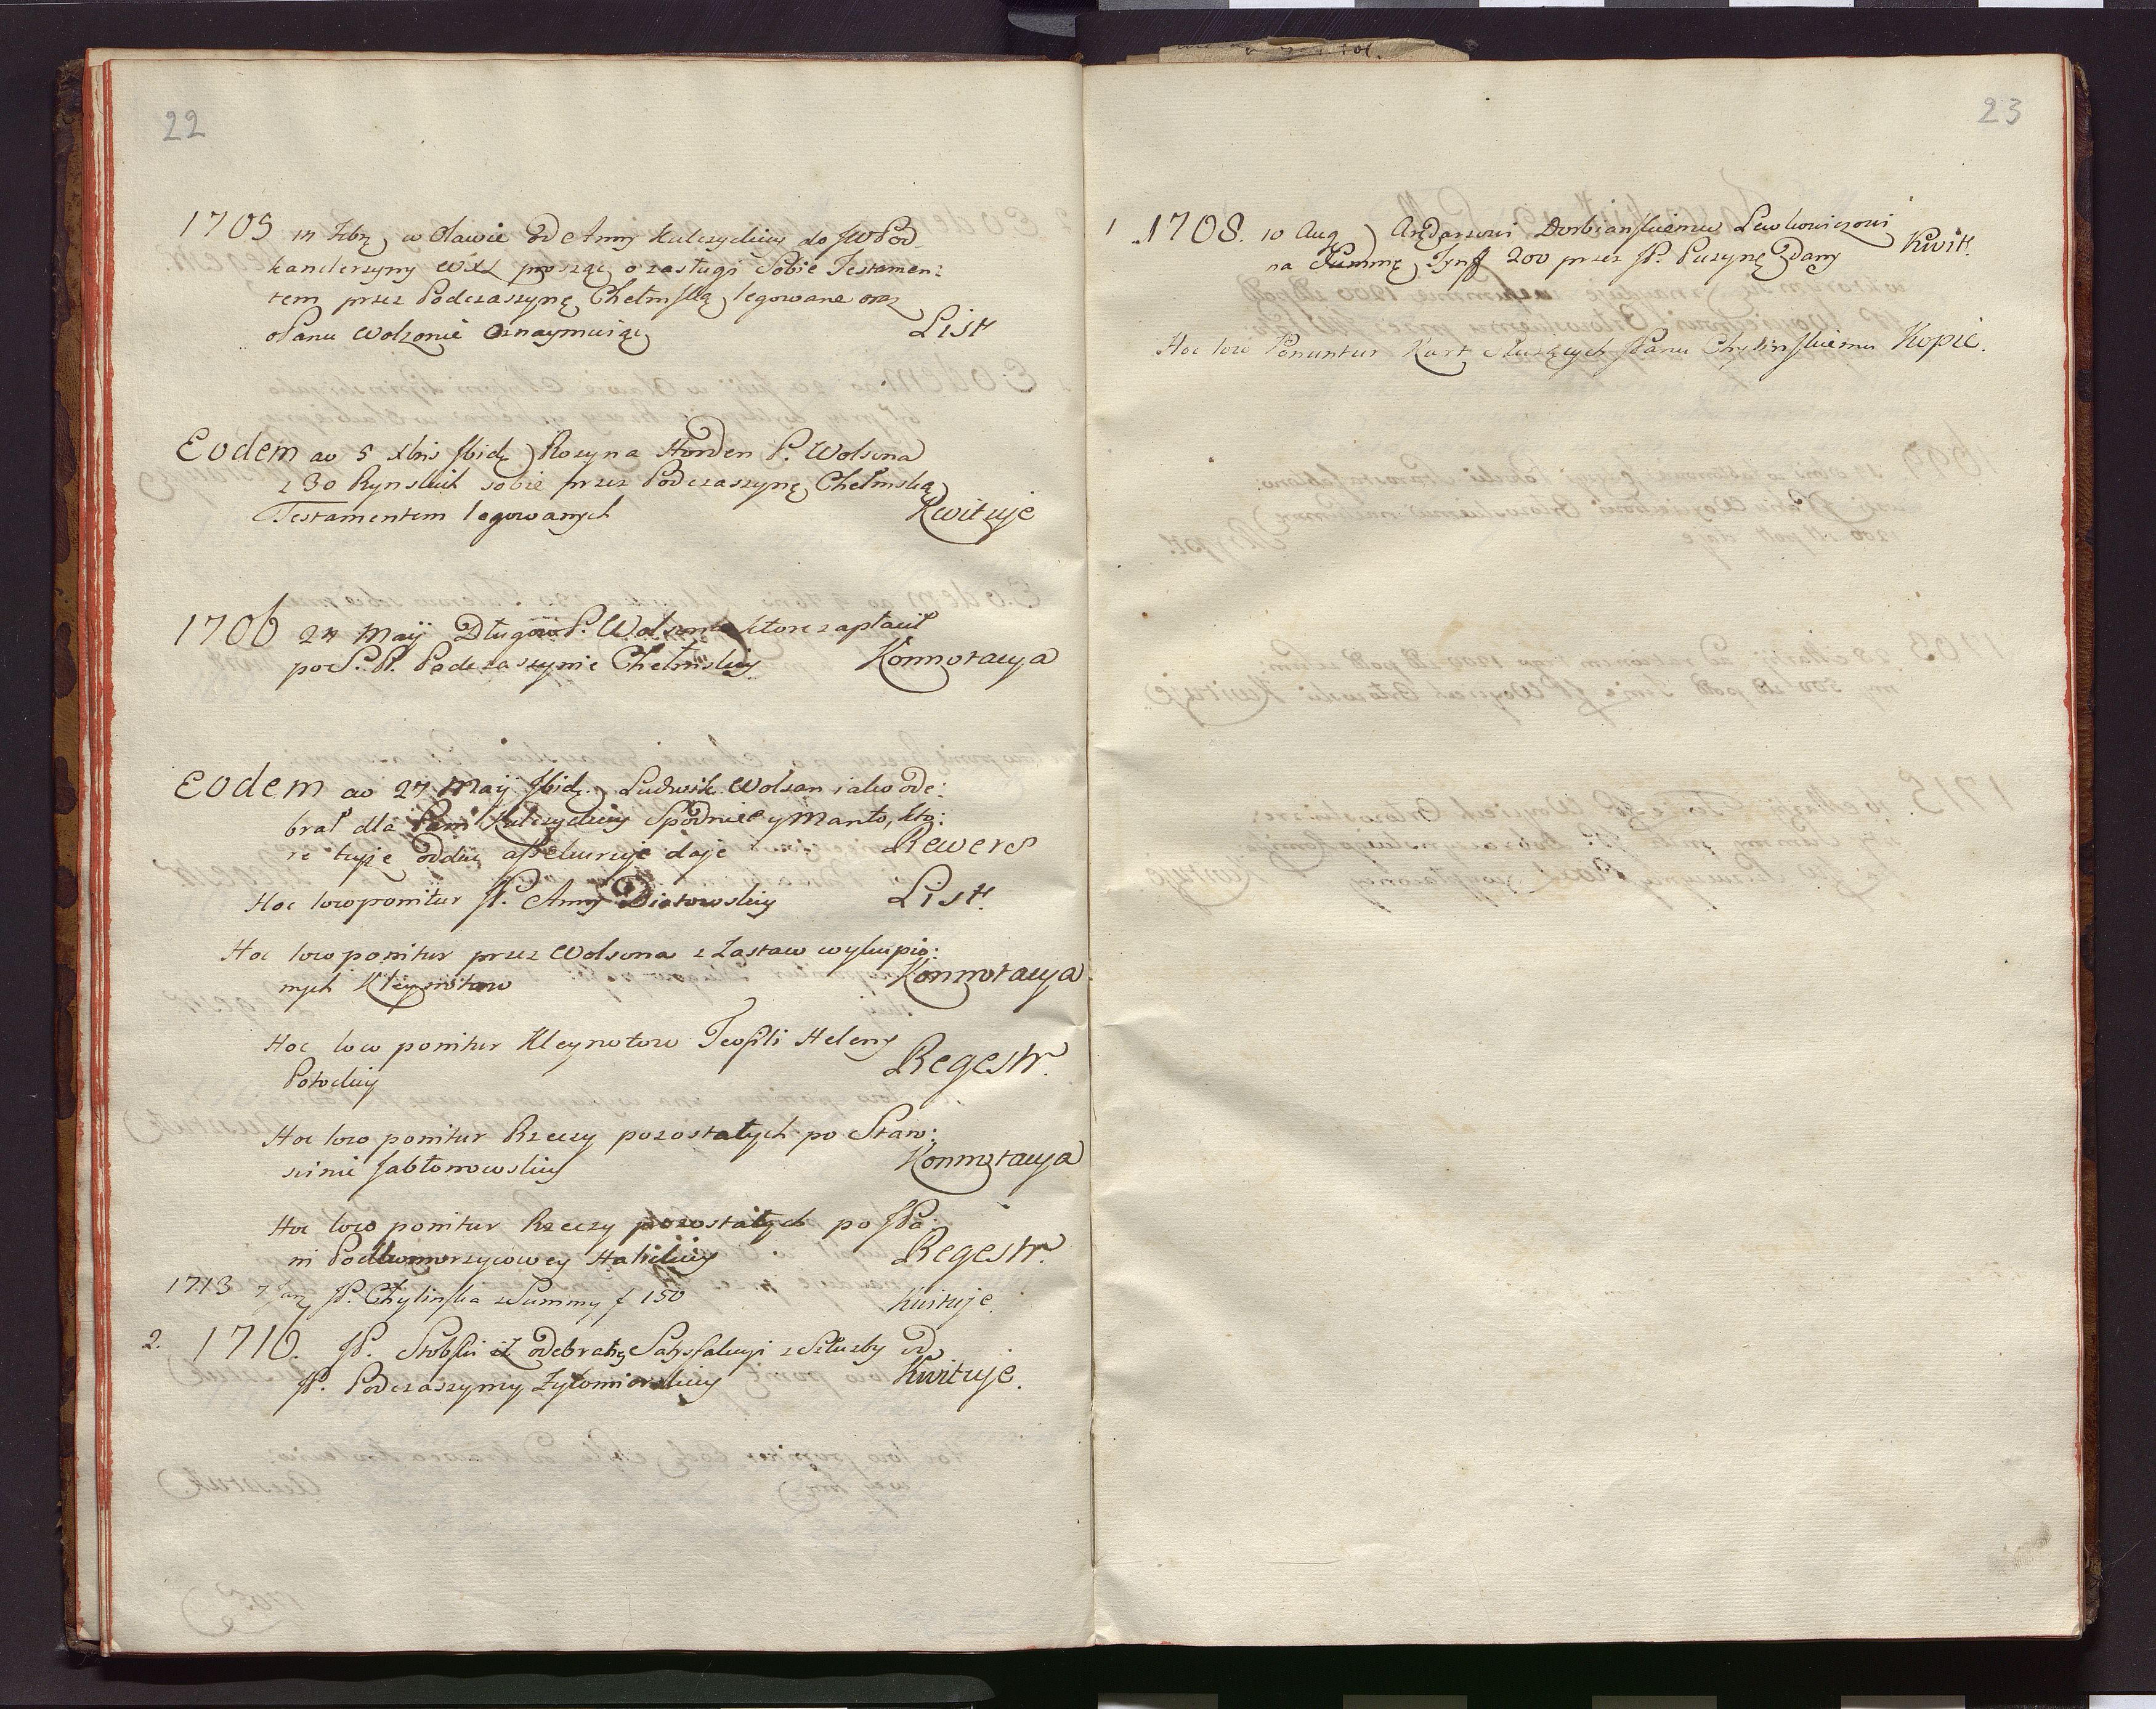 22
1705 14 Xbrę w Oławie Od Anny Kulczyckiey do JWPod-
kanclerzyny WXL prosząc o zasługi Sobie Testamen:
tem przez Podczaszynę Chełmską legowane oraz
oPanu Wolzonie Oznaymuiąc List
Eodem ao 5 Xbris Ibidę Rozyna Horden P. Wolsona
z 30 Rynskich sobie przez Podczaszynę Chełmską
Testamentem legowanych Kwituje
1706 24 Maij Długow P. Wolsona ktore zapłacił
po S. P. Podczaszynie Chełmskiey Konnotacya
Eodem ao 27 Maij Ibidę Ludwik Wolsan iako ode:
brał dla Pani Kulczyckiey Spodnice y Manto, kto:
re tuyże oddać assekuruje daje Rewers
Hoc loco ponitur JP. Anny Diatowskiey List.
Hoc loco ponitur przez Wolsona z Zastaw wykupio:
nych Kleynotow Konnotacya
Hoc loco ponitur Kleynotow Teofili Heleny
Potockiey Regestr.
Hoc loco ponitur Rzeczy pozostałych po Staro:
scinie Jabłonowskiey Konnotacya
Hoc loco ponitur Rzeczy pozostałych po JPa:
ni Podkomorzycowey Halickiey Regestr.
1713 7 Janę JP. Chylinska z Summy f 150 Kwituje.
2. 1716. JP. Stobski iż odebrałę Satysfakcyi z Służby od
JP. Podczaszyny Zytomirskiey Kwituje.
23
1 1708. 10 Augę Arędarzowi Dorbianskiemu Lewkowiczowi
na Summę Tynf 200 przez JP. Puzynę Dany Kwit.
Hoc loco Ponuntur Kart służących JPanu Chylinskiemu Kopie.